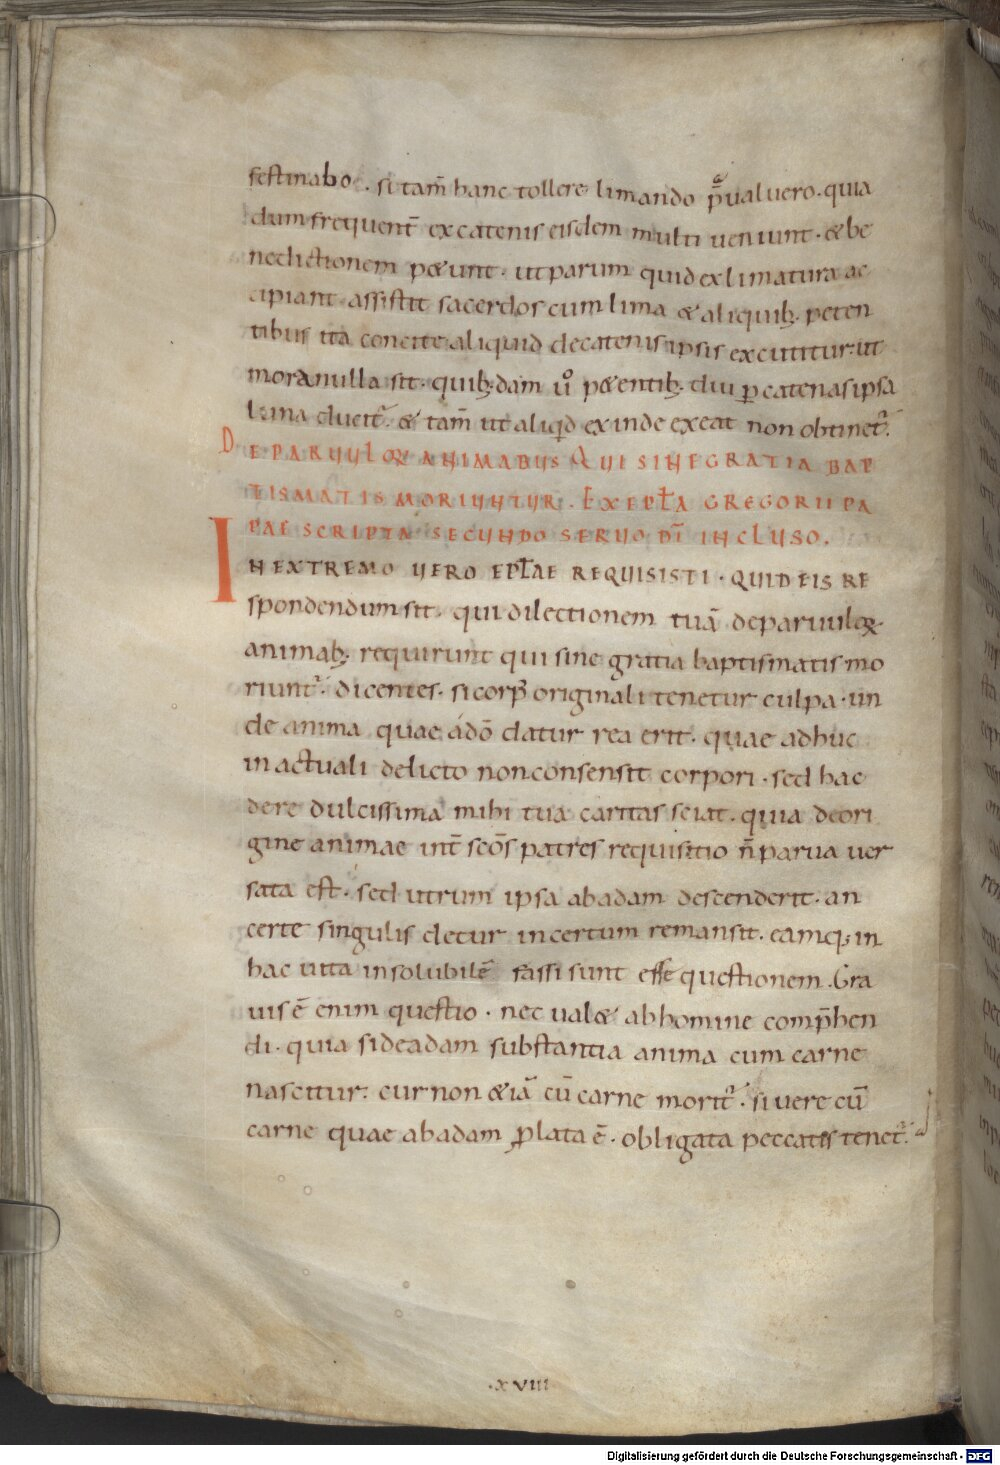 festinabo. si tam̄ hanc tollere limando p̄ualuero. quia
dum frequent̄ ex catenis eisdem multi ueniunt. & be
nedictionem p&unt. ut parum quid ex limatura ac
cipiant. assistit sacerdos cum lima & aliquib; peten
tibus ita concite aliquid de catenis ipsis excutitur. ut
mora nulla sit. quib;dam ůo p&entib; diu ꝑ catenas ipsa
lima ducit᷑. & tam̄ ut aliqid exinde exeat non obtinet᷑.
DE PARUULOꝜ ANIMABUS QUI SINE GRATIA BAP
TISMATIS MORIUNTUR. EX EPLA GREGORII PA
PAE SCRIPTA SECUNDO SERUO DĪ INCLUSO.
IN EXTREMO UERO EPLAE REQUISISTI. QUID EIS RE
spondendum sit. qui dilectionem tuā de paruuloꝝ
animab; requirunt qui sine gratia baptismatis mo
riunt᷑. dicentes. si corp᷒ originali tenetur culpa. un
de anima quae a dō datur rea erit. quae adhuc
in actuali delicto non consensit corpori. sed hac
de re dulcissima mihi tua caritas sciat. quia de ori
gine animae int̄ scōs patres requisitio n̄ parua uer
sata est. sed utrum ipsa ab adam descenderit. an
certe singulis detur incertum remansit. eamq; in
hac uita insolubilē fassi sunt esse questionem. Gra
uis ē enim questio. nec ual& ab homine comp̄hen
di. quia si de adam substantia anima cum carne
nascitur. cur non &iā cū carne morit᷑. si uere cū
carne quae ab adam ꝓlata ē. obligata peccatis tenet᷑.
.xviii
Digitalisierung gefördert durch die Deutsche Forschungsgemeinschaft - DFG